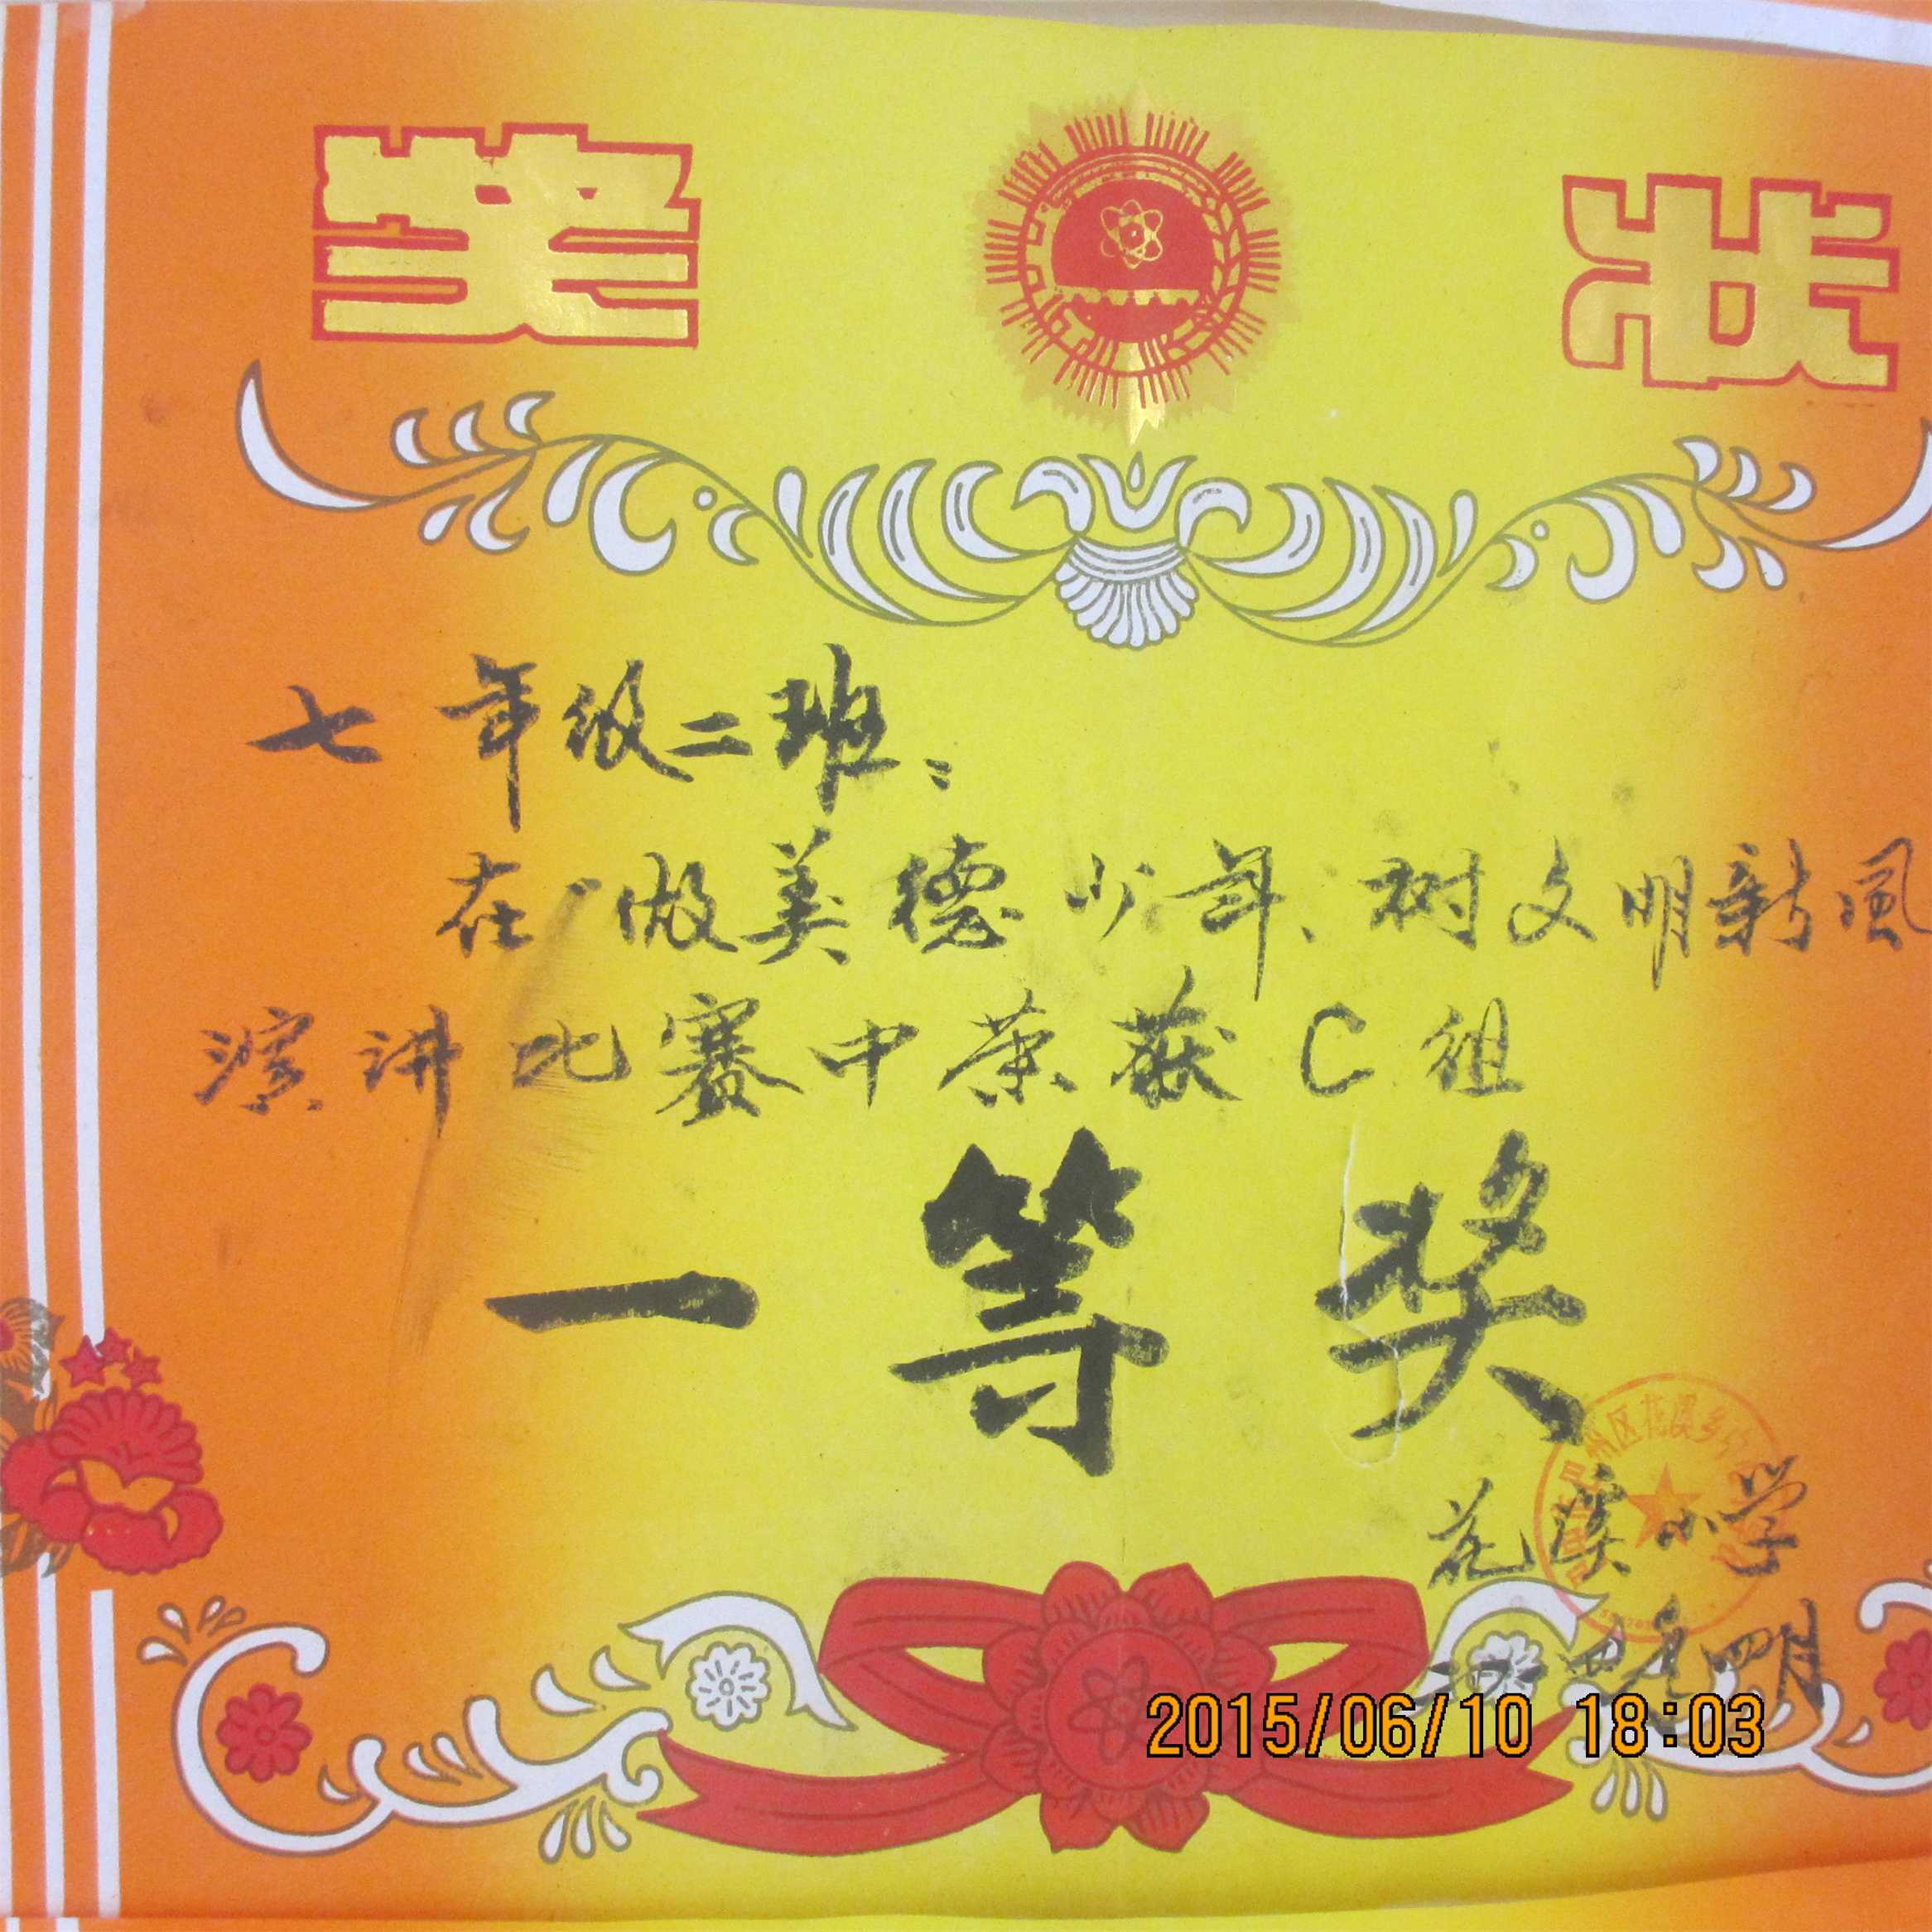 奖 状
七年级二班：
在“做美德少年、树文明新风
演讲比赛中荣获C组
一等奖
州区花溪乡
花溪小学
四月
2015/06/10 18:03